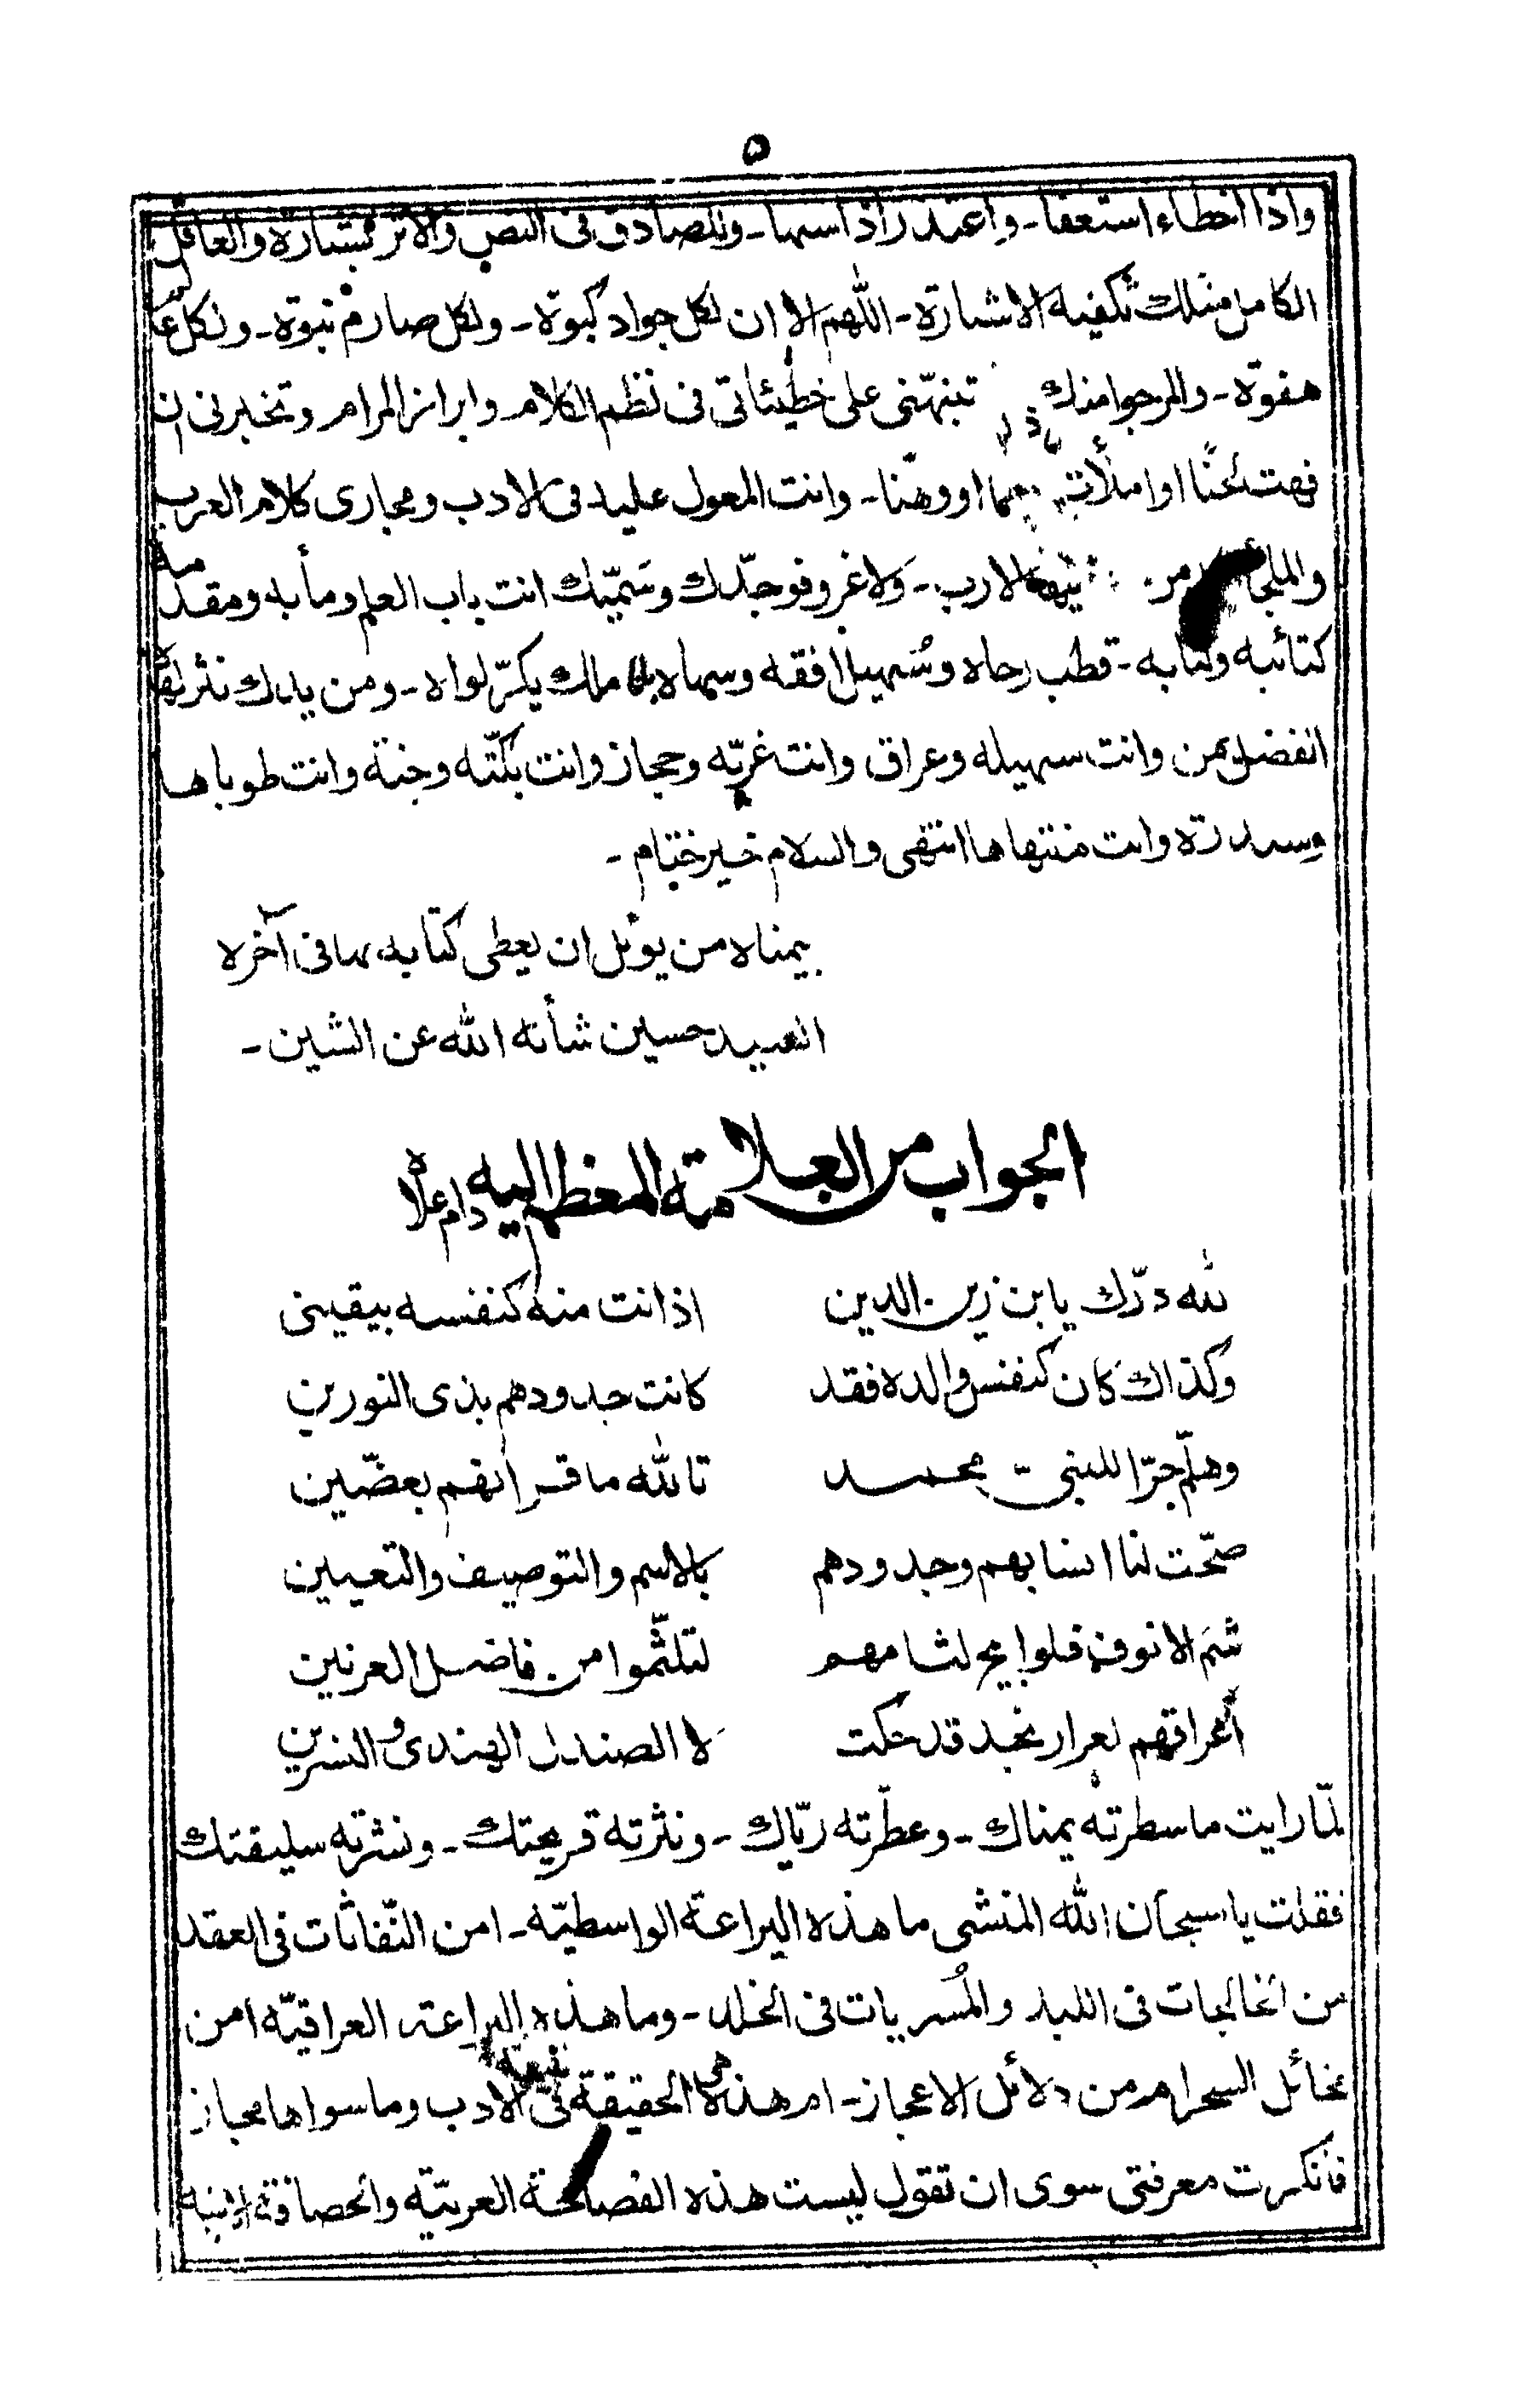 ٥
واذا اخطاء استعفا - واعتذر اذا سها - وللصادق فى النص والاثر بشارة والعاقل
الكامل مثلك تكفيه الاشارة - اللهم الا ان لكل جواد كبوة - ولكل صارم نبوة - ولكل
هفوة - والمرجوا منك تنبهّنى على خطيئاتى فى نظم الكلام وابراز المرام وتخبرنى ان
فهت لحنًا او املأت او وهنّا - وانت المعول عليه فى الادب ومجارى كلام العرب
الارب - وَلا غرو فوجدّك وسَميّك انت باب العلم ومأبه ومقدمة
كتائبه وكتابه - قطب رحاه وسُهيل افقه وسماه بل مالك يكرّ لواه - ومن يدك نثر
انفضل يمن وانت سهيله وعراق وانت غريّه وحجاز وانت بكّته وجنة وانت طوباها
وسدرته وانت منتهاها انتهى والسلام خير ختام -
بيمناه من يؤمل ان يعطى كتابه بها فى آخره
السيد حسين شأنه الله عن الشين -
الجواب من العلامة المغظم اليه دام علاه
لله درّك يا بن زين الدين اذ انت منه كنفسه بيقينى
وكذاك كان كنفس والده فقد كانت جدودهم بذى النورين
وهلمّ جرّا للنبى محمد تالله ما قرانهم بعضّين
صحّت لنا انسابهم وجدودهم بالاسم والتوصيف والتعيين
شم الانوف فلوا يح لثامهم لتلثّموا من فاضل العرنين
أعراقهم لعرار نجد قد حكت لا الصندل الهندى والنسرين
لمّا رايت ما سطرته يمناك - وعطّرته ريّاك - ونثرته قريحتك - ونشرته سليقتك
فقلت يا سبحان الله المنشى ما هذه اليراعة الواسطيّه - امن النّفاثات فى العقد
من الخالجات فى اللبد والمُسريات فى الخلد - وما هذه البراعة العراقيّه امن
مخائل السحر ام من دلائل الاعجاز - ام هذه هى الحقيقة فى الادب وما سواها مجاز
فانكرت معرفتى سوى ان تقول ليست هذه الفصاحة العربيّه والحصافة